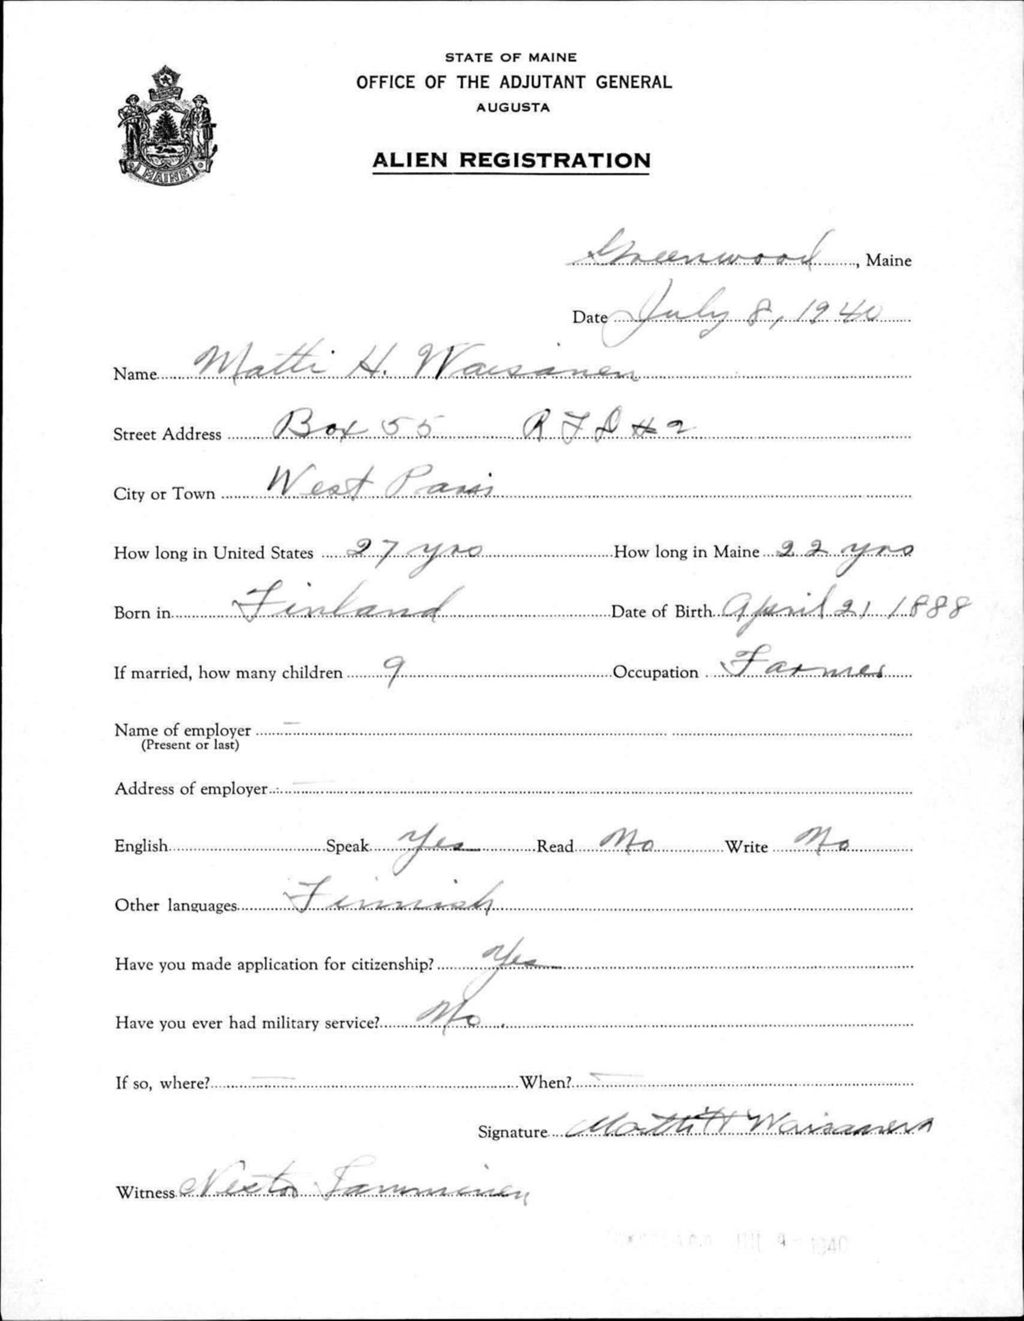 STATE OF MAINE
OFFICE OF THE ADJUTANT GENERAL
AUGUSTA
ALIEN REGISTRATION
MAINE
Greenwood, Maine
Date July 8, 1940
Name Matti H. Waisanen
Street Address Box 55 RFD #2
City or Town West Paris
How long in United States 27 yrs How long in Maine 22 yrs
Born in Finland Date of Birth April 21 1888
If married, how many children 9 Occupation Farmer
Name of employer –
(Present or last)
Address of employer –
English Speak Yes Read No Write No
Other languages Finnish
Have you made application for citizenship? Yes
Have you ever had military service? No
If so, where? – When? –
Signature Matti H Waisanen
Witness Nestor Tamminen